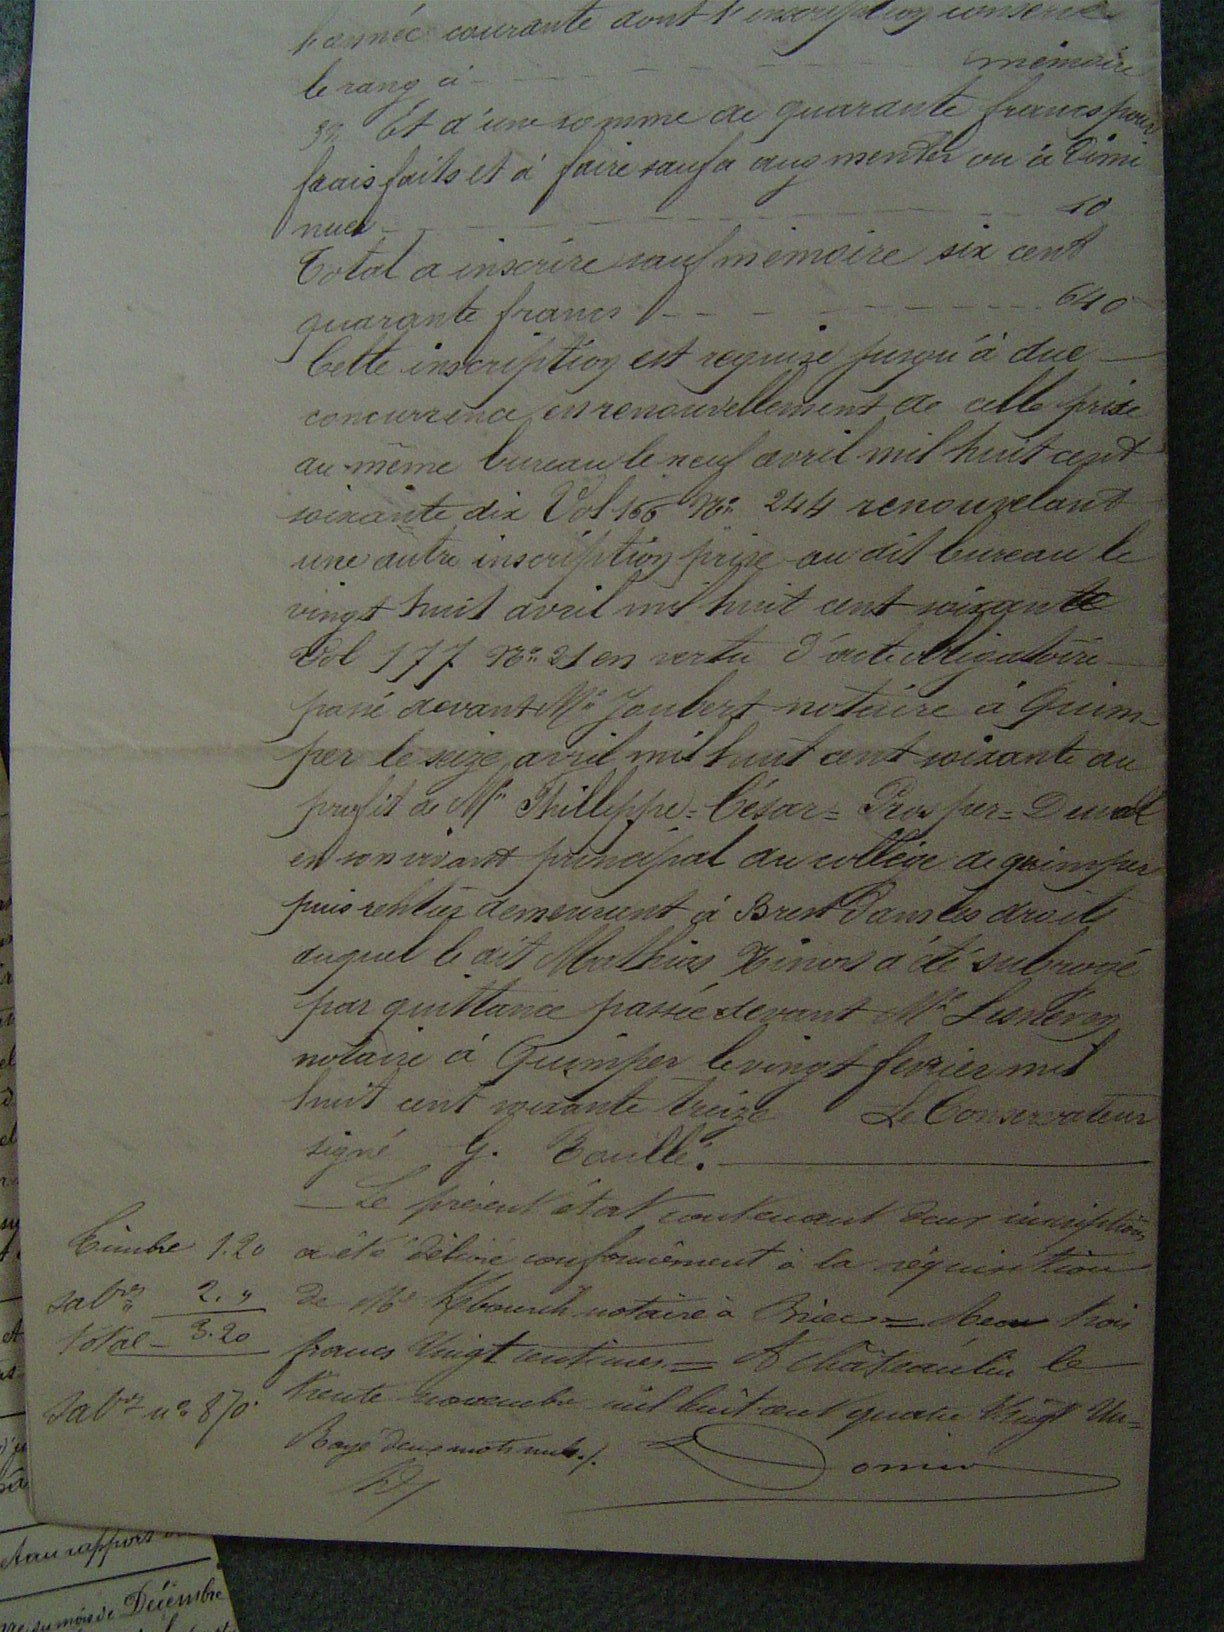 l'année courante dont l'inscription conserve
le rang à mémoire
3º Et d'une somme de quarante francs pour
frais faits et à faire sauf a augmenter ou à dimi
nuer 40
Total a inscrire sauf mémoire six cent
quarante francs 640
Cette inscription est requise jusqu'à due
concurrence en renouvellement de celle prise
au même bureau le neuf avril mil huit cent
soixante dix Vol 166 Nº 244 renouvelant
une autre inscription prise au dit bureau le
vingt huit avril mil huit cent soixante
Vol 177 Nº 21 en vertu d'acte obligatoire
passé devant Me Joubert notaire à Quim-
per le seize avril mil huit cent soixante au
profit de Mr Philleppe=César=Prosper=Duval
en son vivant principal du collège de quimper
puis rentier demeurant à Brest dans les droits
duquel le dit Mathias a été subrogé
par quittance passée devant Me
notaire à Quimper le vingt février mil
huit cent soixante treize Le Conservateur
signé G.
Le présent état contenant deux inscriptions
a été délivré conformément à la réquisition
de Me notaire à Briec = trois
francs Vingt centimes = A Châteaulin le
trente novembre mil huit cent quatre Vingt Un=
Rayé deux mots nuls./.
Timbre 1.20
Salres 2. "
Total - 3.20
Salres nº 870.
et au rapport
mois de Décembre